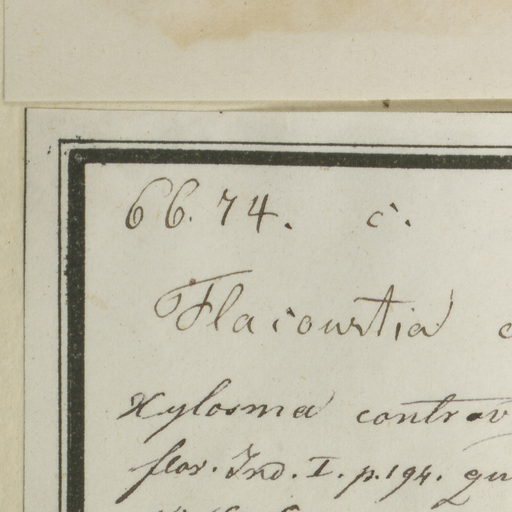 6674. c.
Flacourtia
Xylosma controv
flor. Ind. I. p. 194.